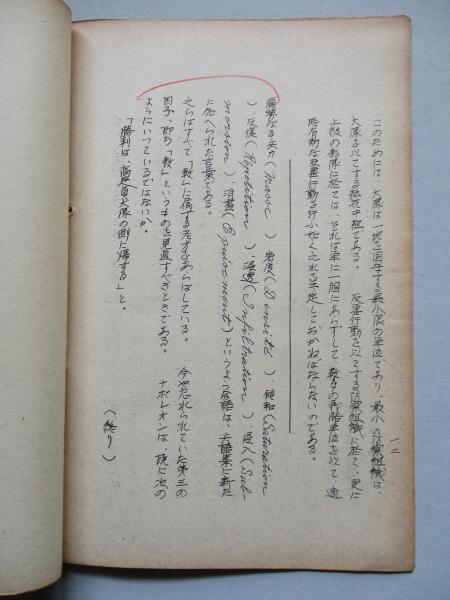 一二
このためには、大隊は一地を固守する最小限の単位であり、最小の組織は、
大隊を以てする抵抗中枢である。 反撃行動を以てする組織に於て、更に
上級の部隊に於ては、それは単に一個にあらずして、数多の戦略単位を以て
時有効な反撃行動を行ふ如く之れを予定しておかねばならないのである。
優勢なる兵力(Masse)、密度(Densité)、飽和(Saturation
)、反復(Repetition)、浸透(Infiltration)、侵入(Sub-
mersion)、消盡(Epuisement)というような言語は、兵語集に新た
に加へられた言葉である。
之らはすべて「数」に属する考方をあらはしている。 今や忘れられていた第三の
因子、即ち「数」というものを見直すべきときである。 ナポレオンは、既に次の
ようにいつているではないか。
「勝利は、大隊の側に帰する」と。
(終り)